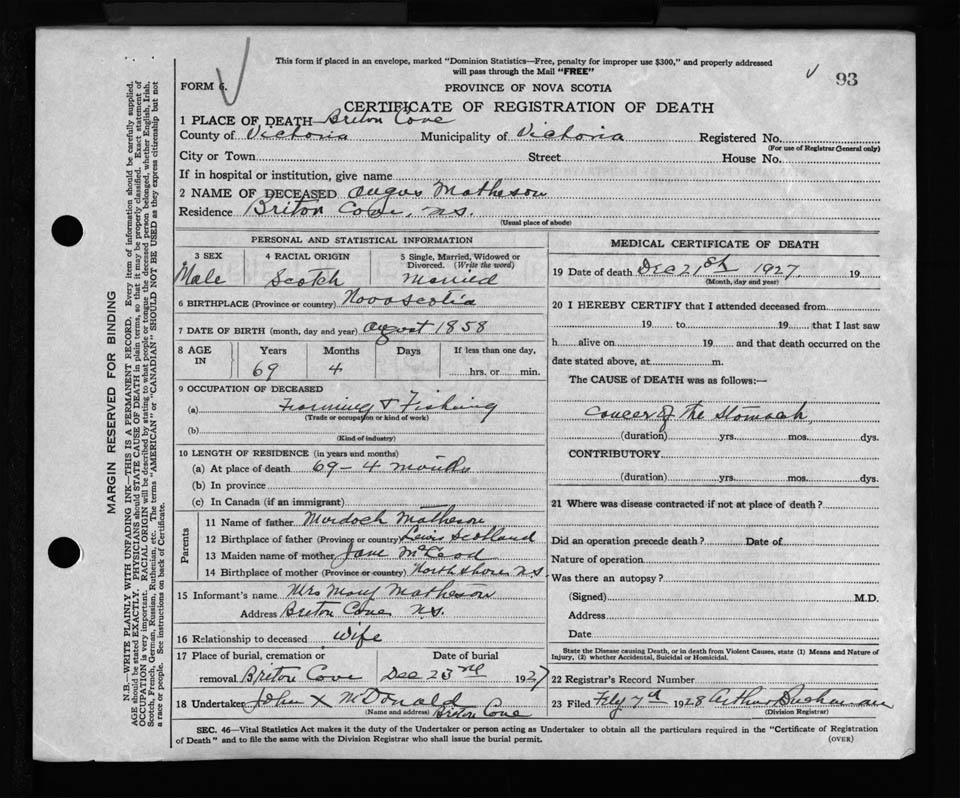 This form if placed in an envelope, marked "Dominion Statistics—Free, penalty for improper use $300," and properly addressed
will pass through the Mail "FREE"
93
FORM 6.
PROVINCE OF NOVA SCOTIA
CERTIFICATE OF REGISTRATION OF DEATH
1 PLACE OF DEATH Briton Cove
County of Victoria Municipality of Victoria Registered No.
(For use of Registrar General only)
City or Town Street House No.
If in hospital or institution, give name
2 NAME OF DECEASED Angus Matheson
Residence Briton Cove, N.S.
(Usual place of abode)
PERSONAL AND STATISTICAL INFORMATION
3 SEX 4 RACIAL ORIGIN 5 Single, Married, Widowed or
Divorced. (Write the word)
Male Scotch Married
6 BIRTHPLACE (Province or country) Nova Scotia
7 DATE OF BIRTH (month, day and year) August 1858
8 AGE IN Years Months Days If less than one day,
69 4 hrs. or min.
9 OCCUPATION OF DECEASED
(a) Farming & Fishing
(Trade or occupation or kind of work)
(b)
(Kind of industry)
10 LENGTH OF RESIDENCE (in years and months)
(a) At place of death 69 - 4 months
(b) In province
(c) In Canada (if an immigrant)
Parents
11 Name of father Murdoch Matheson
12 Birthplace of father (Province or country) Lewis Scotland
13 Maiden name of mother Jane McLeod
14 Birthplace of mother (Province or country) North Shore N.S.
15 Informant's name Mrs Mary Matheson
Address Briton Cove N.S.
16 Relationship to deceased wife
17 Place of burial, cremation or Date of burial
removal Briton Cove Dec 23rd 1927
18 Undertaker John X McDonald
(Name and address) Briton Cove
MEDICAL CERTIFICATE OF DEATH
19 Date of death Dec 21st 1927 19
(Month, day and year)
20 I HEREBY CERTIFY that I attended deceased from
19 to 19 that I last saw
h alive on 19 and that death occurred on the
date stated above, at m.
The CAUSE of DEATH was as follows:—
Cancer of the Stomach
(duration) yrs. mos. dys.
CONTRIBUTORY
(duration) yrs. mos. dys.
21 Where was disease contracted if not at place of death?
Did an operation precede death? Date of
Nature of operation
Was there an autopsy?
(Signed) M.D.
Address
Date
State the Disease causing Death, or in death from Violent Causes, state (1) Means and Nature of
Injury, (2) whether Accidental, Suicidal or Homicidal.
22 Registrar's Record Number
23 Filed Feby 7th 1928 Arthur Buchanan
(Division Registrar)
SEC. 46—Vital Statistics Act makes it the duty of the Undertaker or person acting as Undertaker to obtain all the particulars required in the "Certificate of Registration
of Death" and to file the same with the Division Registrar who shall issue the burial permit.
(OVER)
MARGIN RESERVED FOR BINDING
N.B.—WRITE PLAINLY WITH UNFADING INK—THIS IS A PERMANENT RECORD. Every item of information should be carefully supplied.
AGE should be stated EXACTLY. PHYSICIANS should STATE CAUSE OF DEATH in plain terms, so that it may be properly classified. Exact statement of
OCCUPATION is very important. RACIAL ORIGIN will be described by stating to what people or tongue the deceased person belonged, whether English, Irish,
Scotch, French, German, Russian, Ruthenian, etc. The terms "AMERICAN" or "CANADIAN" SHOULD NOT BE USED as they express citizenship but not
a race or people. See instructions on back of Certificate.